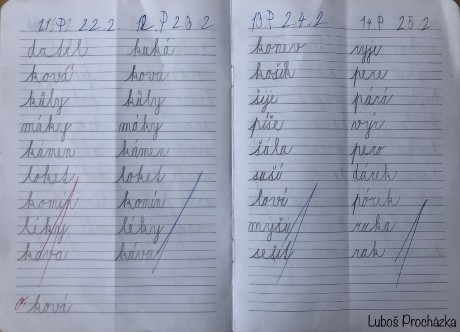 11.P 22.2
datel
ková
kůly
máky
kámen
loket
komín
léky
káva
ková
12.P 23.2
kuká
ková
kůly
máky
kámen
loket
komín
léky
káva
13.P 24.2
konev
košík
šije
píše
šála
suší
loví
myši
sešit
14.P 25.2
ryje
pere
párá
výr
pero
dárek
párek
ruka
rak
Luboš Procházka